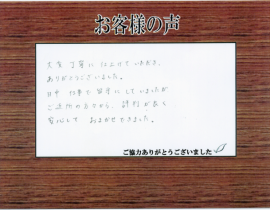 お客様の声
大変丁寧に仕上げていただき、
ありがとうございました。
日中 仕事で留守にしていましたが
ご近所の方からも、評判が良く
安心して おまかせできました。
ご協力ありがとうございました